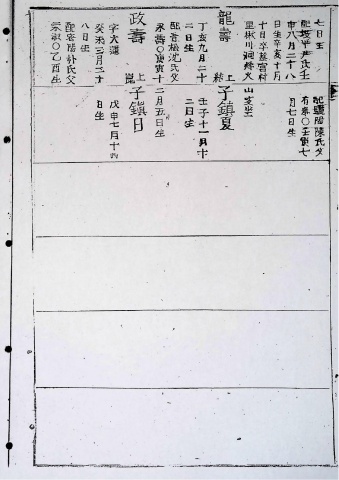 七日生
配坡平尹氏壬
申八月二十八
日生辛亥十月
十日卒墓宮村
里楸川洞緣久
龍壽
丁亥九月二十
二日生
配青松沈氏父
永壽〇庚寅十
政壽
字大蓮
癸未三月二十
八日生
配安陽朴氏父
宗淑〇乙酉生
配驪陽陳氏父
有泰〇壬寅七
月七日生
山亥坐
子鎮夏
壬子十一月十
二日生
二月五日生
子鎮日
戊申七月十四
日生